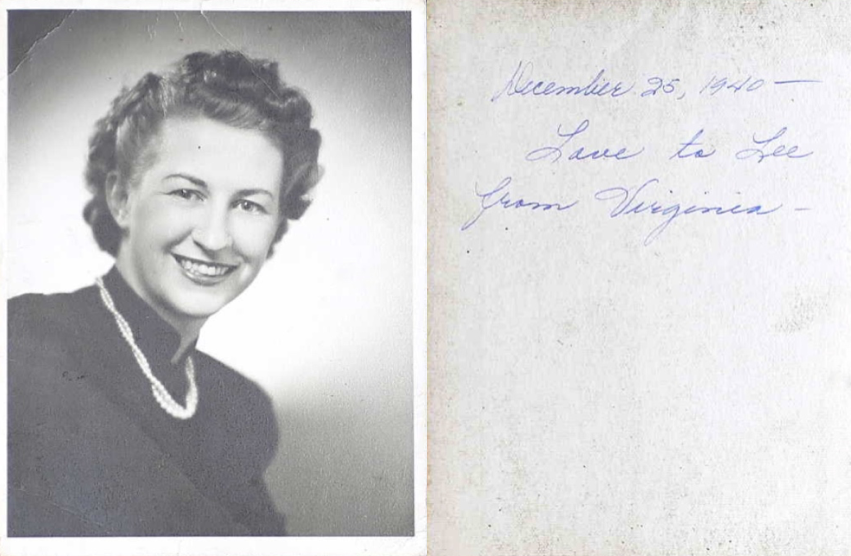 December 25, 1940—
Love to Lee
from Virginia—